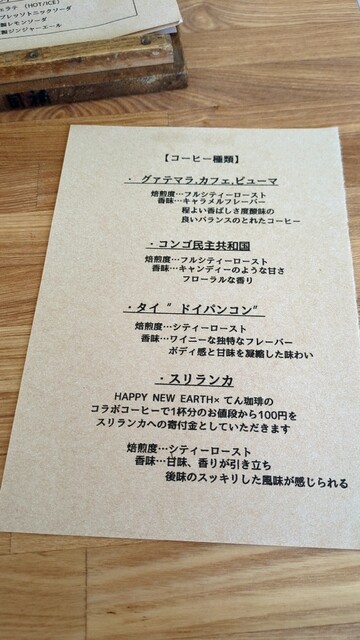 ェラテ (HOT/ICE)
プレッソトニックソーダ
製レモンソーダ
製ジンジャーエール
【コーヒー種類】
・ グァテマラ,カフェ,ピューマ
焙煎度…フルシティーロースト
香味…キャラメルフレーバー
程よい香ばしさ度酸味の
良いバランスのとれたコーヒー
・コンゴ民主共和国
焙煎度…フルシティーロースト
香味…キャンディーのような甘さ
フローラルな香り
・タイ ” ドイパンコン”
焙煎度…シティーロースト
香味…ワイニーな独特なフレーバー
ボディ感と甘味を凝縮した味わい
・スリランカ
HAPPY NEW EARTH× てん珈琲の
コラボコーヒーで1杯分のお値段から100円を
スリランカへの寄付金としていただきます
焙煎度…シティーロースト
香味…甘味、香りが引き立ち
後味のスッキリした風味が感じられる